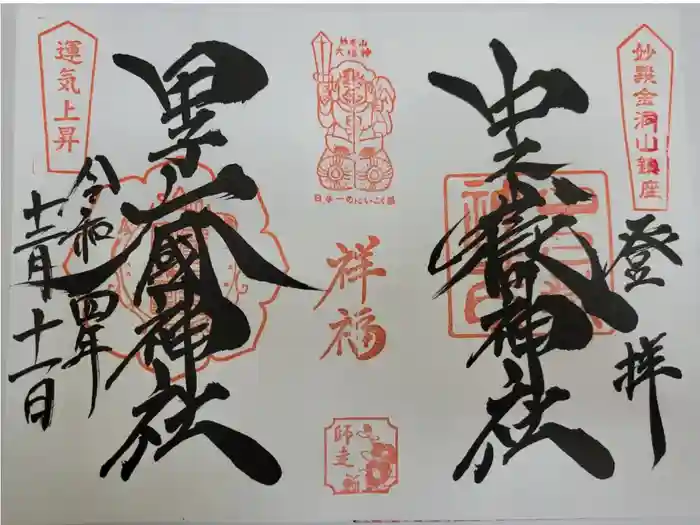 妙義金洞山鎮座
登拝
中之嶽神社
日本一のだいこく様
祥福
師走
甲子大國神社
運気上昇
令和四年
十二月十一日